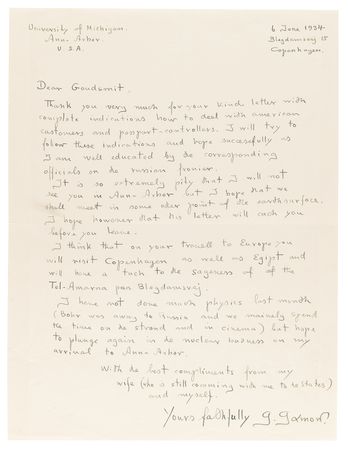 University of Michigan.
Ann-Arbor.
U.S.A.
6 June 1934
Blegdamsvej 15
Copenhagen.
Dear Goudsmit.
Thank you very much for your kind letter with
complete indications how to deal with american
customers and passport-controllers. I will try to
follow these indications and hope succesfully as
I am will educated by the corresponding
officials on the russian fronier.
It is so extremely pity that I will not
see you in Ann-Arbor but I hope that we
shall meet in some other point of the earth surface.
I hope however that his letter will cach you
before you leave.
I think that on your travell to Europe you
will visit Copenhagen as well as Egipt and
will have a tuch to the of of the
Tel-Amarna pan Blegdamsvej.
I have not done much physics last month
(Bohr was away to Russia and we mainely spend
the time on de strand and in cinema) but hope
to plunge again in de nuclear badness on my
arrival to Ann-Arbor.
With de best compliments from my
wife (who is still comming with me to de States)
and myself.
Yours faithfully G. Gamow.